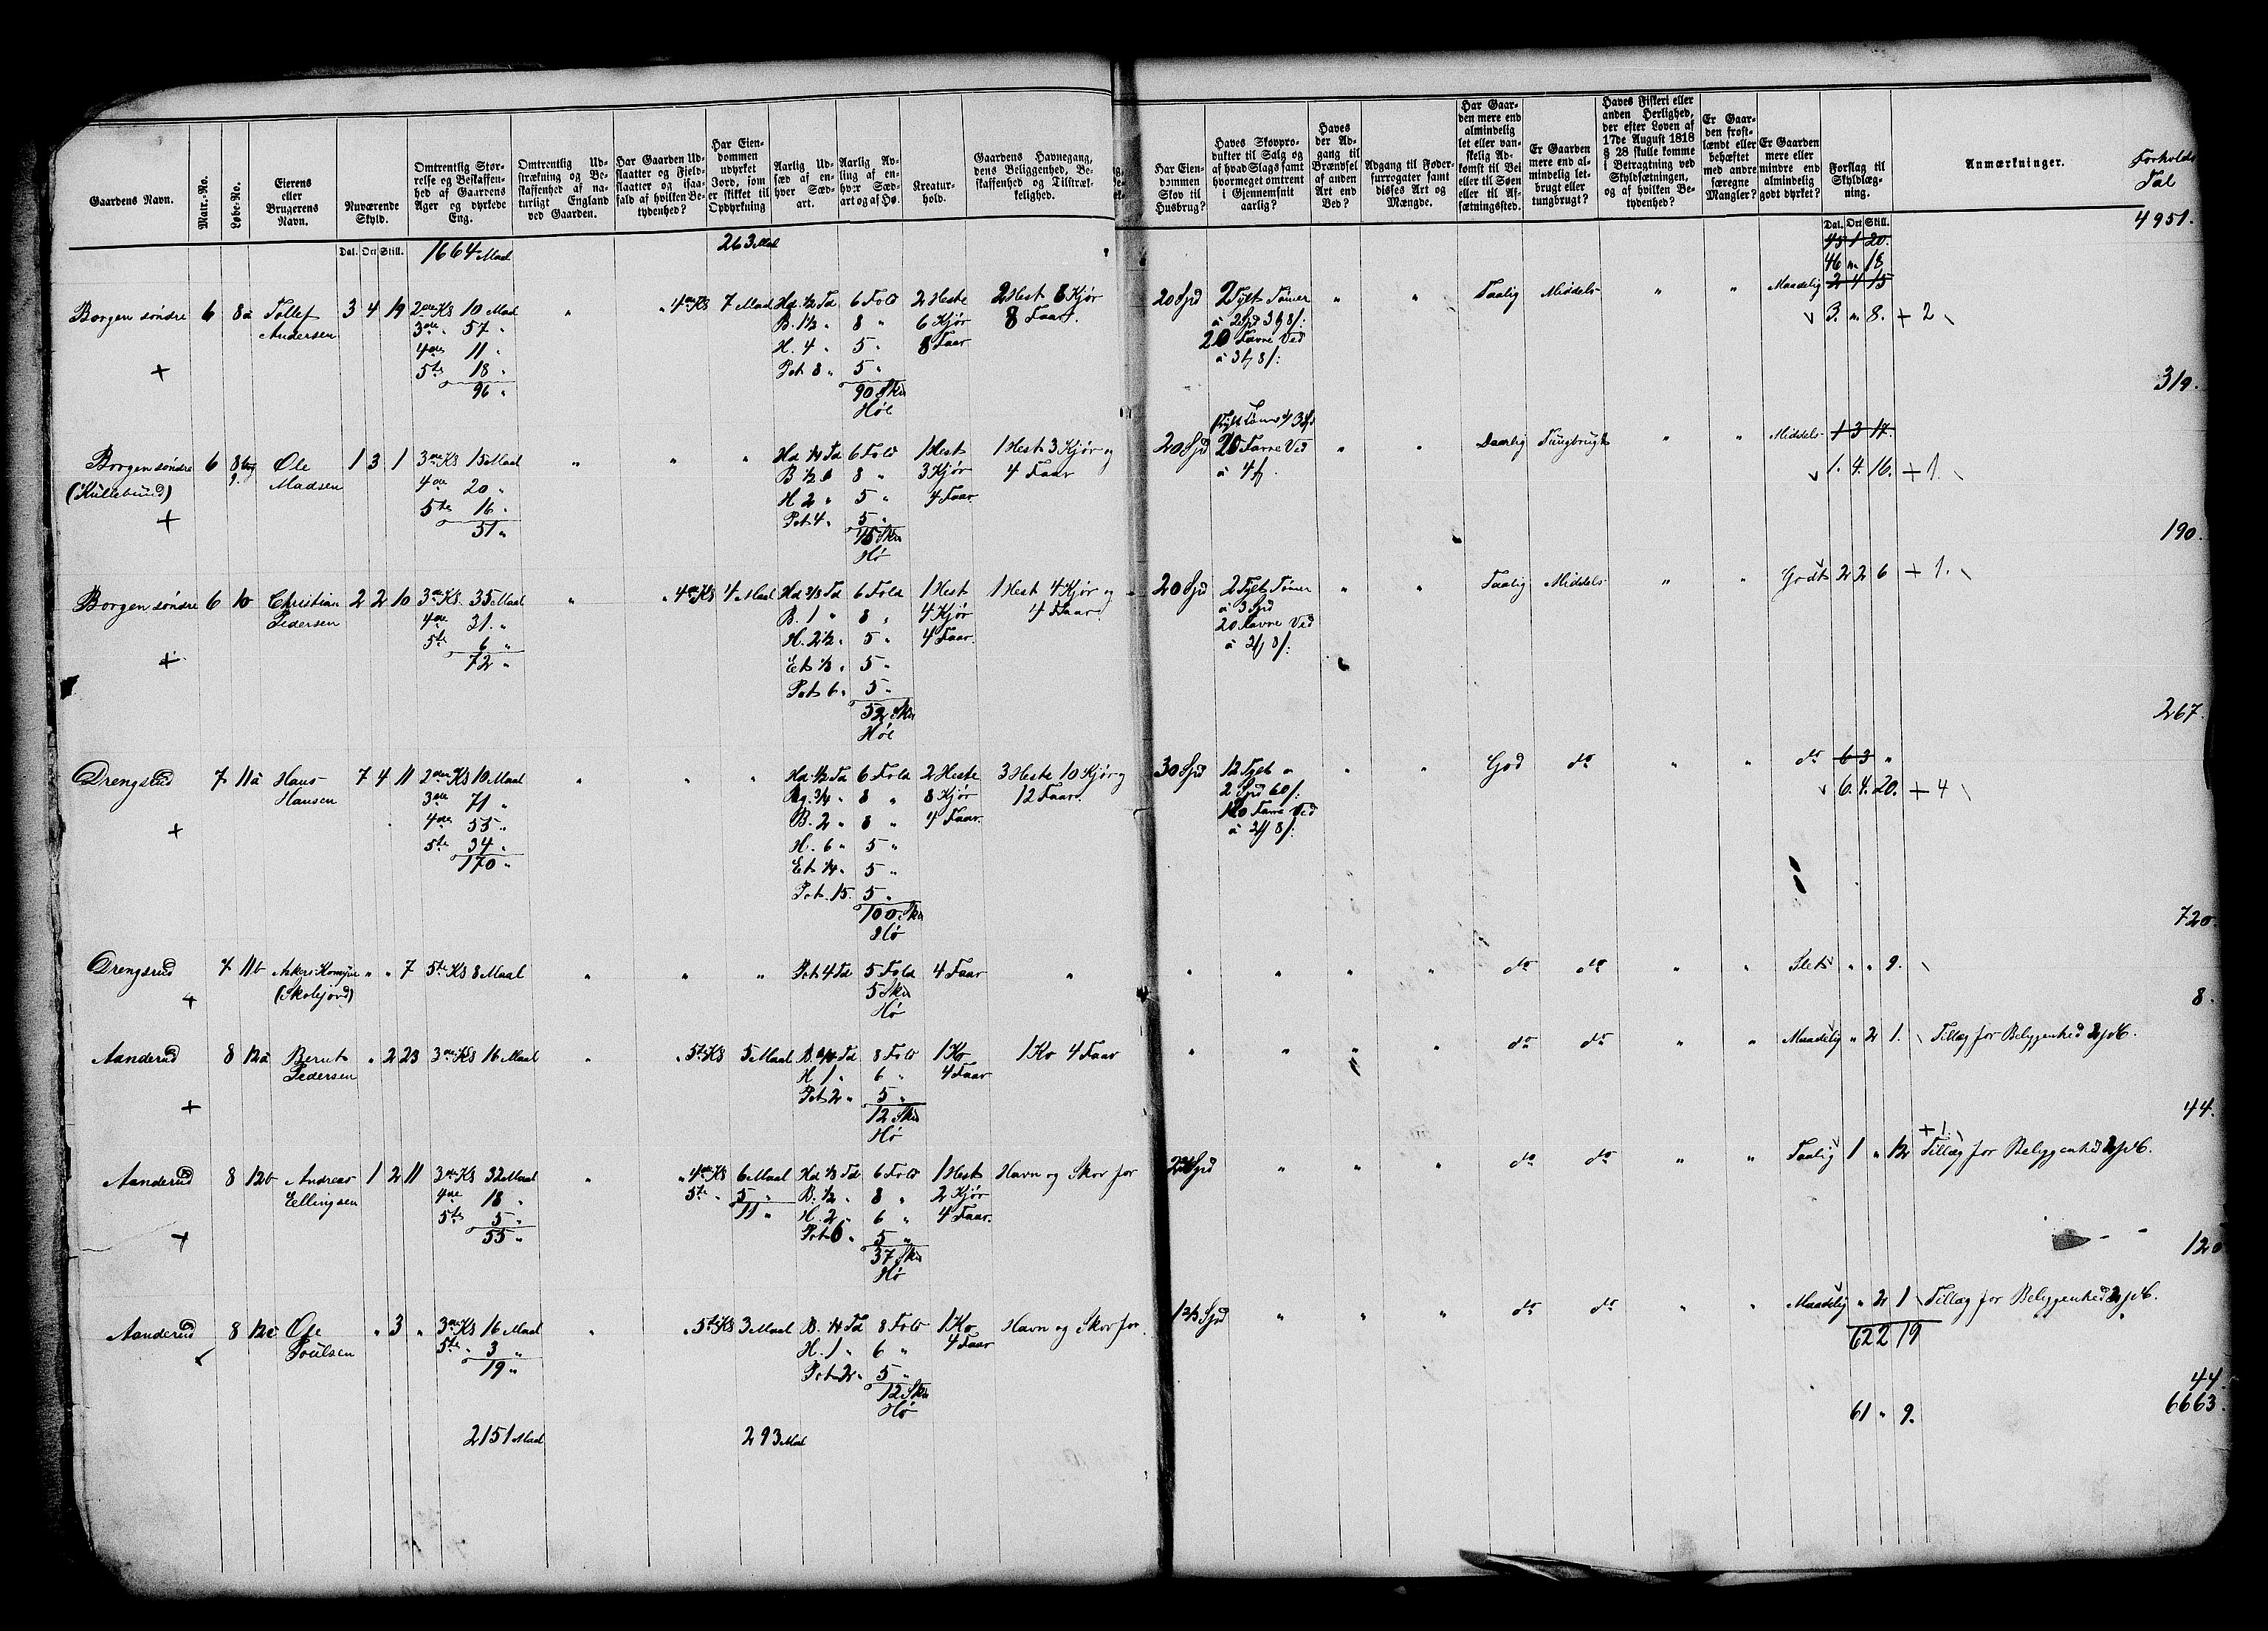 Gaardens Navn.
Matr.-No.
Løbe-No.
Eierens eller Brugerens Navn.
Nuværende Skyld.
Omtrentlig Størrelse og Beskaffenhed af Gaardens Ager og dyrkede Eng.
Omtrentlig Udstrækning og Beskaffenhed af naturligt England ved Gaarden.
Har Gaarden Udslaatter og Fjeldslaatter og isaafald af hvilken Betydenhed?
Har Eiendommen udyrket Jord, som er skikket til Opdyrkning
Aarlig Udsæd af enhver Sædart.
Aarlig Avling af enhver Sædart og af Hø.
Kreaturhold.
Gaardens Havnegang, dens Beliggenhed, Beskaffenhed og Tilstrækkelighed.
Har Eiendommen Skov til Husbrug?
Haves Skovprodukter til Salg og af hvad Slags samt hvormeget omtrent i Gjennemsnitt aarlig?
Haves der Adgang til Brændsel af anden Art end Ved?
Adgang til Fødersurrogater samt disses Art og Mængde.
Har Gaarden mere end almindelig let eller vanskelig Adkomst til Vei eller til Søen eller til Afsætningssted.
Er Gaarden mere end almindelig letbrugt eller tungbrugt?
Haves Fiskeri eller anden Herlighed, der efter Loven af 17de August 1818 § 28 skulle komme i Betragtning ved Skyldsætningen, og af hvilken Betydenhed?
Er Gaarden frostlændt eller behæftet med andre særegne Mangler?
Er Gaarden mere eller mindre end almindelig godt dyrket?
Forslag til Skyldlægning.
Anmærkninger.
Forholds Tal
Dal. Ort Skill. 1664 Maal 263 Maal Dal. Ort Skill. 4951.
45 1 20.
46 " 18
Borgen søndre 6 8a Tollef 3 4 19 2den Kl 10 Maal " " 4de Kl 7 Maal Hd ½ Td 6 Fold 2 Heste 2 Hest 8 Kjør 20 Spd 2 Tylt Tømer " " Taalig Middels " " Maadelig 2 4 15
Andersen 3die " 57 " B. 1½ " 8 " 6 Kjør 8 Faar. à 2 Spd 3 ₰ 8 /: 3. " 8. + 2
4de 11 " H. 4 " 5 " 8 Faar 20 Favne Ved
+ 5te 18 " Pot 8 " 5 " à 3 ₰ 8 /:
96 " 90 Skd 319.
Høe
Borgen søndre 6 8b og 9. Ole 1 3 1 3die Kl 15 Maal " " " Hd ¼ Td 6 Fold 1 Hest 1 Hest 3 Kjør og 20 Spd 20 Favne Ved " " Daarlig Tungbrugt " " Middels 1 3 17.
(Kullebund) Madsen 4de 20 " B ½ " 8 " 3 Kjør 4 Faar à 4 ₰. 1. 4. 16. + 1.
+ 5te 16 " H 2 " 5 " 4 Faar
51 " Pot 4 " 5 "
45 Skd 190.
Hø
Borgen søndre 6 10 Christian 2 2 10 3die Kl. 35 Maal " " 4de Kl 4 Maal 6 Fold 1 Hest 1 Hest 4 Kjør og 20 Spd 2 Tylt Tømer " " Taalig Middels " " Godt 2 2 6 + 1.
Pedersen 4de 31. " B. 1 " 8 " 4 Kjør 4 Faar. à 3 Spd
5te 6 " H. 2½ " 5 " 4 Faar. 20 Favne Ved
+ 72 " Ert ⅛ " 5 " à 3 ₰ 8 /:
Pot 6 " 5 "
52 Skd 267.
Høe
Drengsrud 7 11a Hans 7 4 11 2den Kl 10 Maal " " " Hd ½ Td 6 Fold 2 Heste 3 Heste 10 Kjør og 30 Spd 12 Tylt à " " God do " " do 6 3 "
Hansen 3die 71 " Bg. ¾ " 8 " 8 Kjør 12 Faar. 2 Spd 60 /: 6. 4. 20. + 4
+ 4de 55 " B. 2 " 8 " 4 Faar. Favne Ved
5te 34 " H. 6 " 5 " à 3 ₰ 8 /:
170 " Ert ¼ " 5 "
Pot. 15. 5 "
100 Skd 720.
Hø
Drengsrud 7 11b Askers Komune " " 7 5te Kl 8 Maal " " " Pot 4 Td 5 Fold 4 Faar " " " " " do do " " Slet " " 9.
+ (Skolejord) 5 Skd 8.
Hø
Aanderud 8 12a Bernt " 2 23 3die Kl 16 Maal " " 5te Kl 5 Maal B. ¼ Td 8 Fold 1 Ko 1 Ko 4 Faar " " " " do do " " Maadelig " 2 1. Tillæg for Beliggenhed
Pedersen H 1 " 6 " 4 Faar
+ Pot 2 " 5 "
12 Skd 44.
Hø
+ 1.
Aanderud 8 12b Andreas 1 2 11 3die Kl 32 Maal " " 4de Kl 6 Maal Hd ⅛ Td 6 Fold 1 Hest Havn og Skov for 22 Spd " " " do do " " Taalig 1 " 12 Tillæg for Beliggenhed
Ellingsen 4de 18 " 5te " 5 " B. ½ " 8 " 2 Kjør
5te 5 " 11 " H. 2 " 6 " 4 Faar.
+ 55 " Pot 6 " 5 " 120
37 Skd
Hø
Aanderud 8 12c Ole " 3 " 3die Kl 16 Maal " " 5te Kl 3 Maal B. ¼ Td 8 Fold 1 Ko Havn og Skov for Spd " " " do do " " Maadelig " 2 1 Tillæg for Beliggenhed
Poulsen 5te " 3 " H. 1 " 6 " 4 Faar 62 2 19
19 " Pot 2 " 5 "
12 Skd 44.
Hø 61 " 9. 6663.
2151 Maal 293 Maal